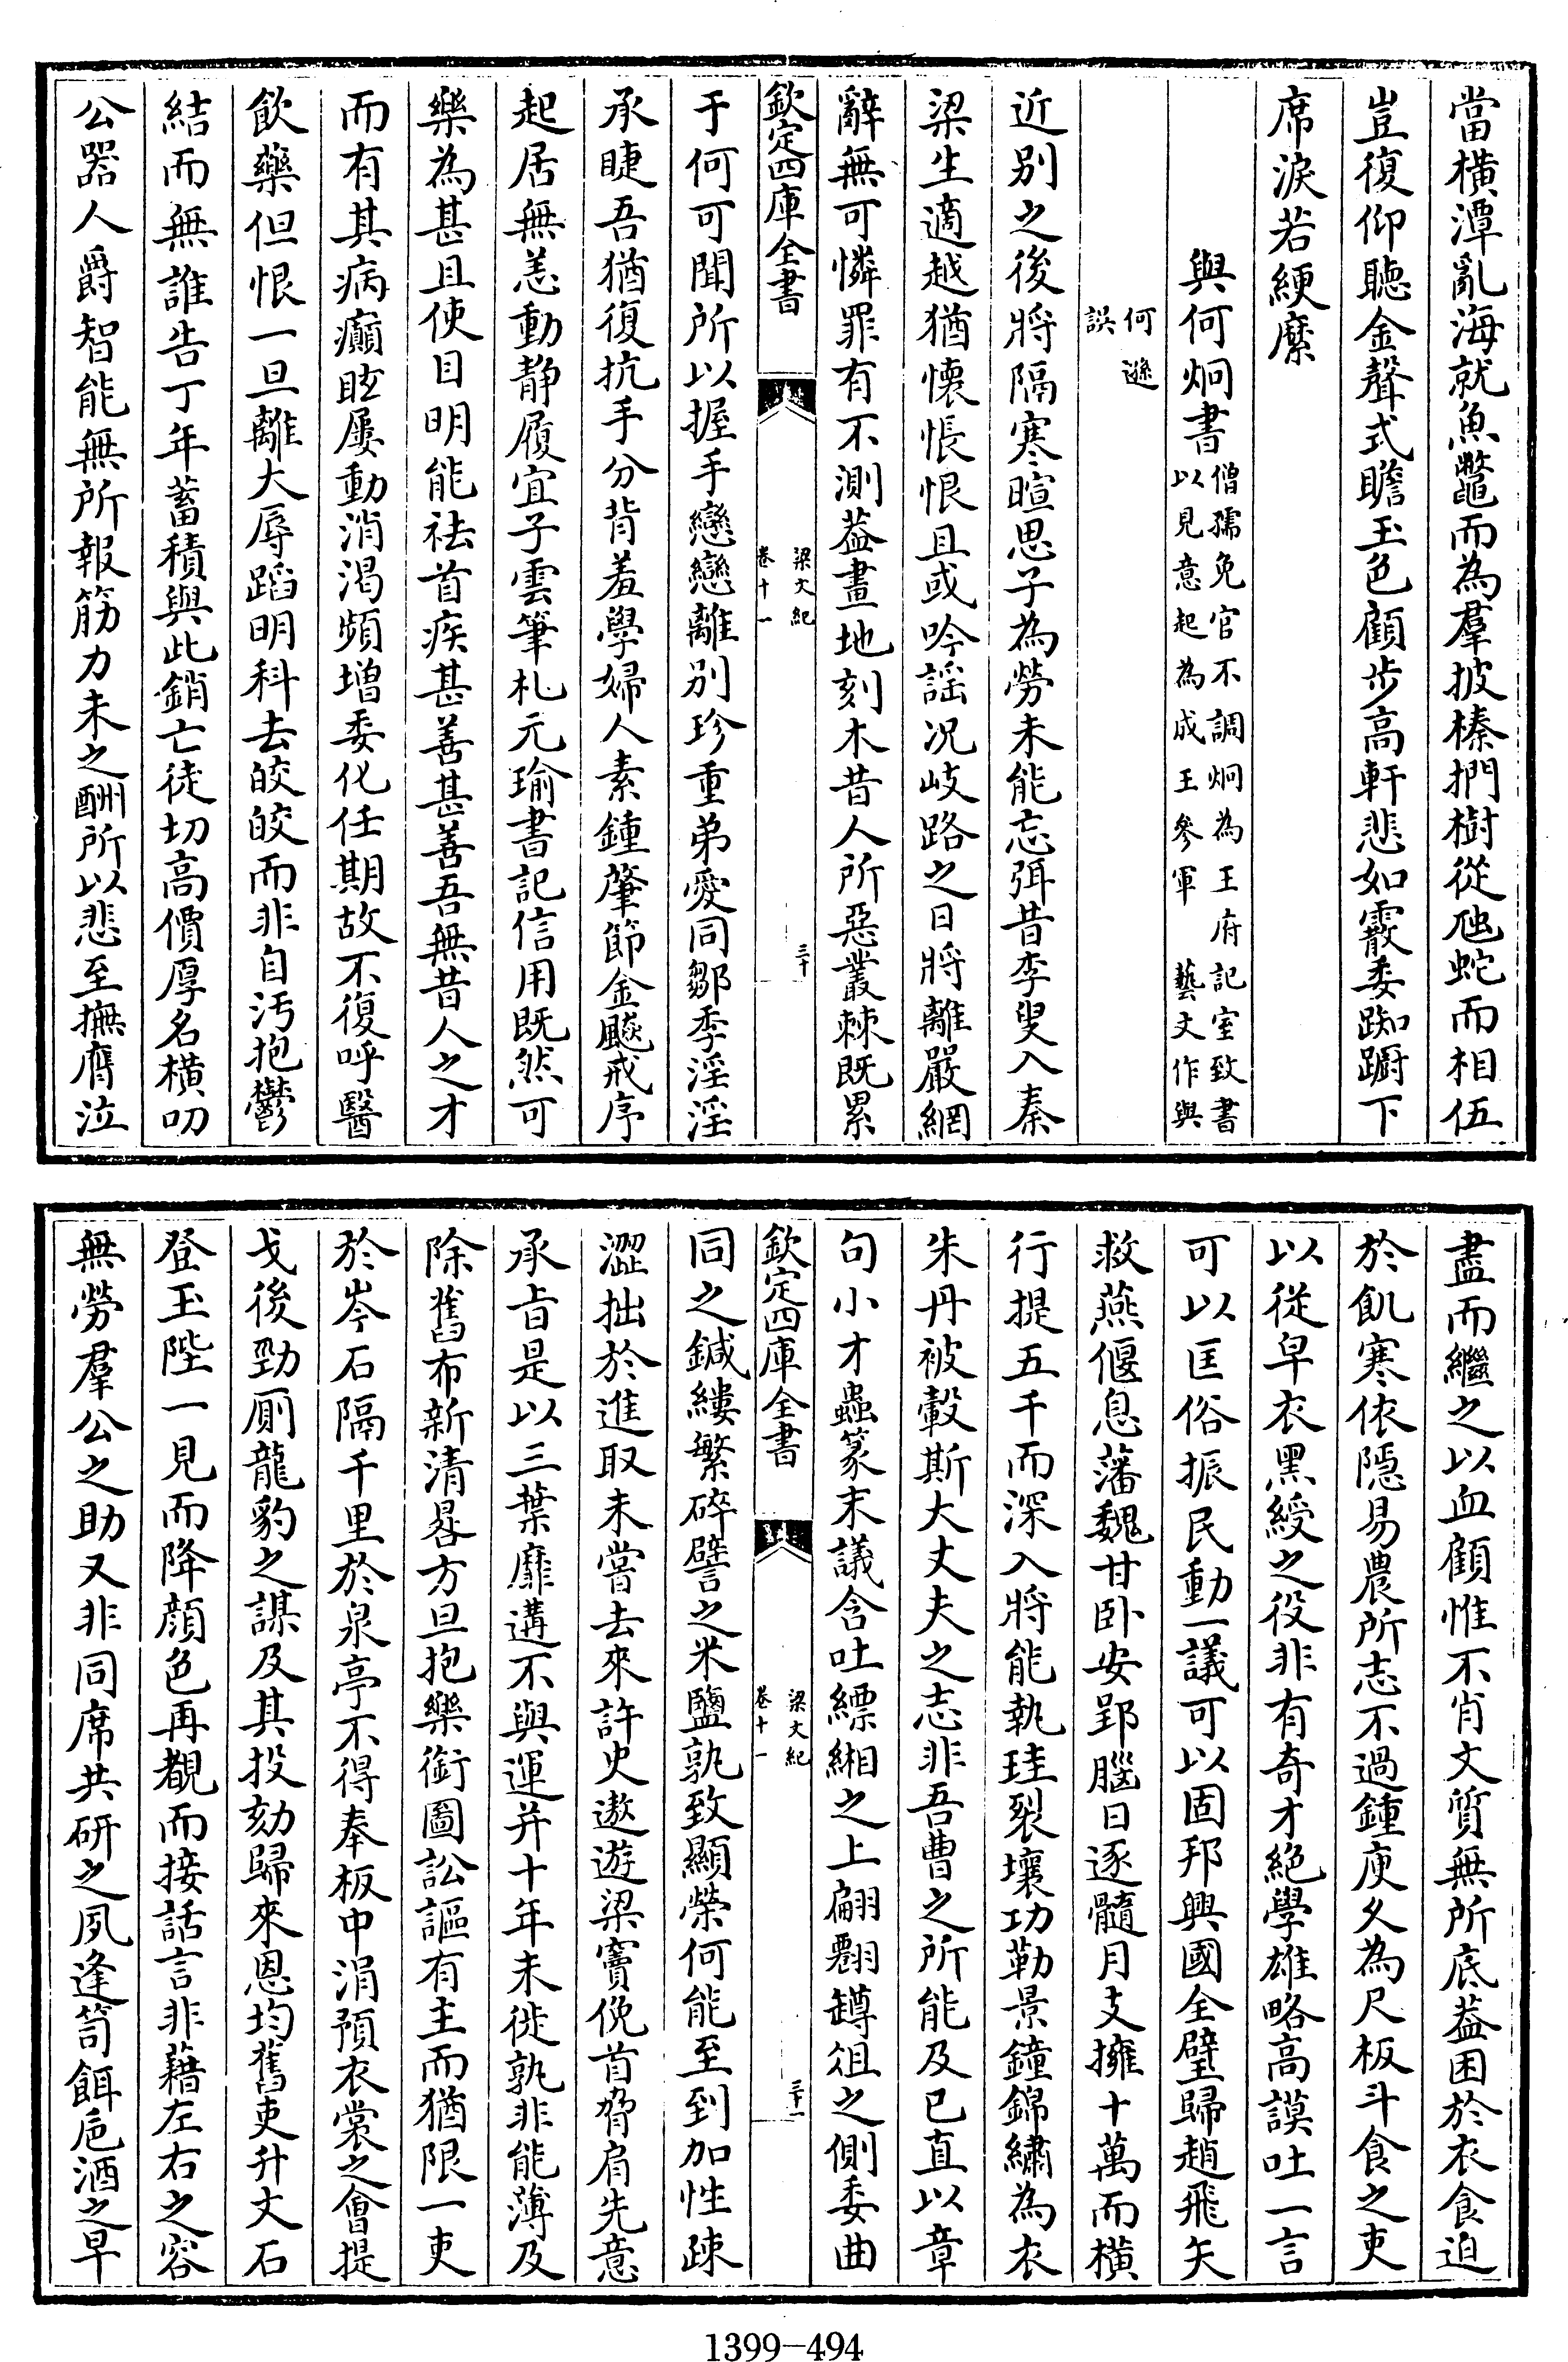 當橫潭亂海就魚鼈而為羣披榛捫樹從虺蛇而相伍
豈復仰聽金聲式瞻玉色顧步高軒悲如霰委踟蹰下
席淚若綆縻
與何炯書僧孺免官不調炯為王府記室致書
以見意起為成王參軍 藝文作與
何遜
誤
近别之後將隔寒暄思子為勞未能忘弭昔李叟入秦
梁生適越猶懷悵恨且或吟謡況岐路之日將離嚴網
辭無可憐罪有不測葢畫地刻木昔人所惡叢棘既累
欽定四庫全書
梁文紀
卷十一
三十
于何可聞所以握手戀戀離别珍重弟愛同鄒季淫淫
承睫吾猶復抗手分背羞學婦人素鍾肇節金飈戒序
起居無恙動静履宜子雲筆札元瑜書記信用既然可
樂為甚且使目明能祛首疾甚善甚善吾無昔人之才
而有其病癲眩屢動消渴頻增委化任期故不復呼醫
飲藥但恨一旦離大辱蹈明科去皎皎而非自汚抱鬱
結而無誰告丁年蓄積與此銷亡徒切高價厚名橫叨
公器人爵智能無所報筋力未之酬所以悲至撫膺泣
盡而繼之以血顧惟不肖文質無所底葢困於衣食迫
於飢寒依隱易農所志不過鍾庾久為尺板斗食之吏
以從皁衣黑綬之役非有奇才絶學雄略高謨吐一言
可以匡俗振民動一議可以固邦興國全璧歸趙飛矢
救燕偃息藩魏甘卧安郢腦日逐髓月支擁十萬而橫
行提五千而深入將能執珪裂壤功勒景鐘錦繡為衣
朱丹被轂斯大丈夫之志非吾曹之所能及已直以章
句小才蟲篆末議含吐縹緗之上翩翾罇俎之側委曲
欽定四庫全書
梁文紀
卷十一
三十一
同之鍼縷繁碎譬之米鹽孰致顯榮何能至到加性疎
澀拙於進取未嘗去來許史遨遊梁竇俛首脅肩先意
承旨是以三葉靡遘不與運并十年未徙孰非能薄及
除舊布新清晷方旦抱樂銜圖訟謳有主而猶限一吏
於岑石隔千里於泉亭不得奉板中涓預衣裳之會提
戈後勁厠龍豹之謀及其投劾歸來恩均舊吏升文石
登玉陛一見而降顔色再覩而接話言非藉左右之容
無勞羣公之助又非同席共研之夙逢笥餌巵酒之早
1399-494